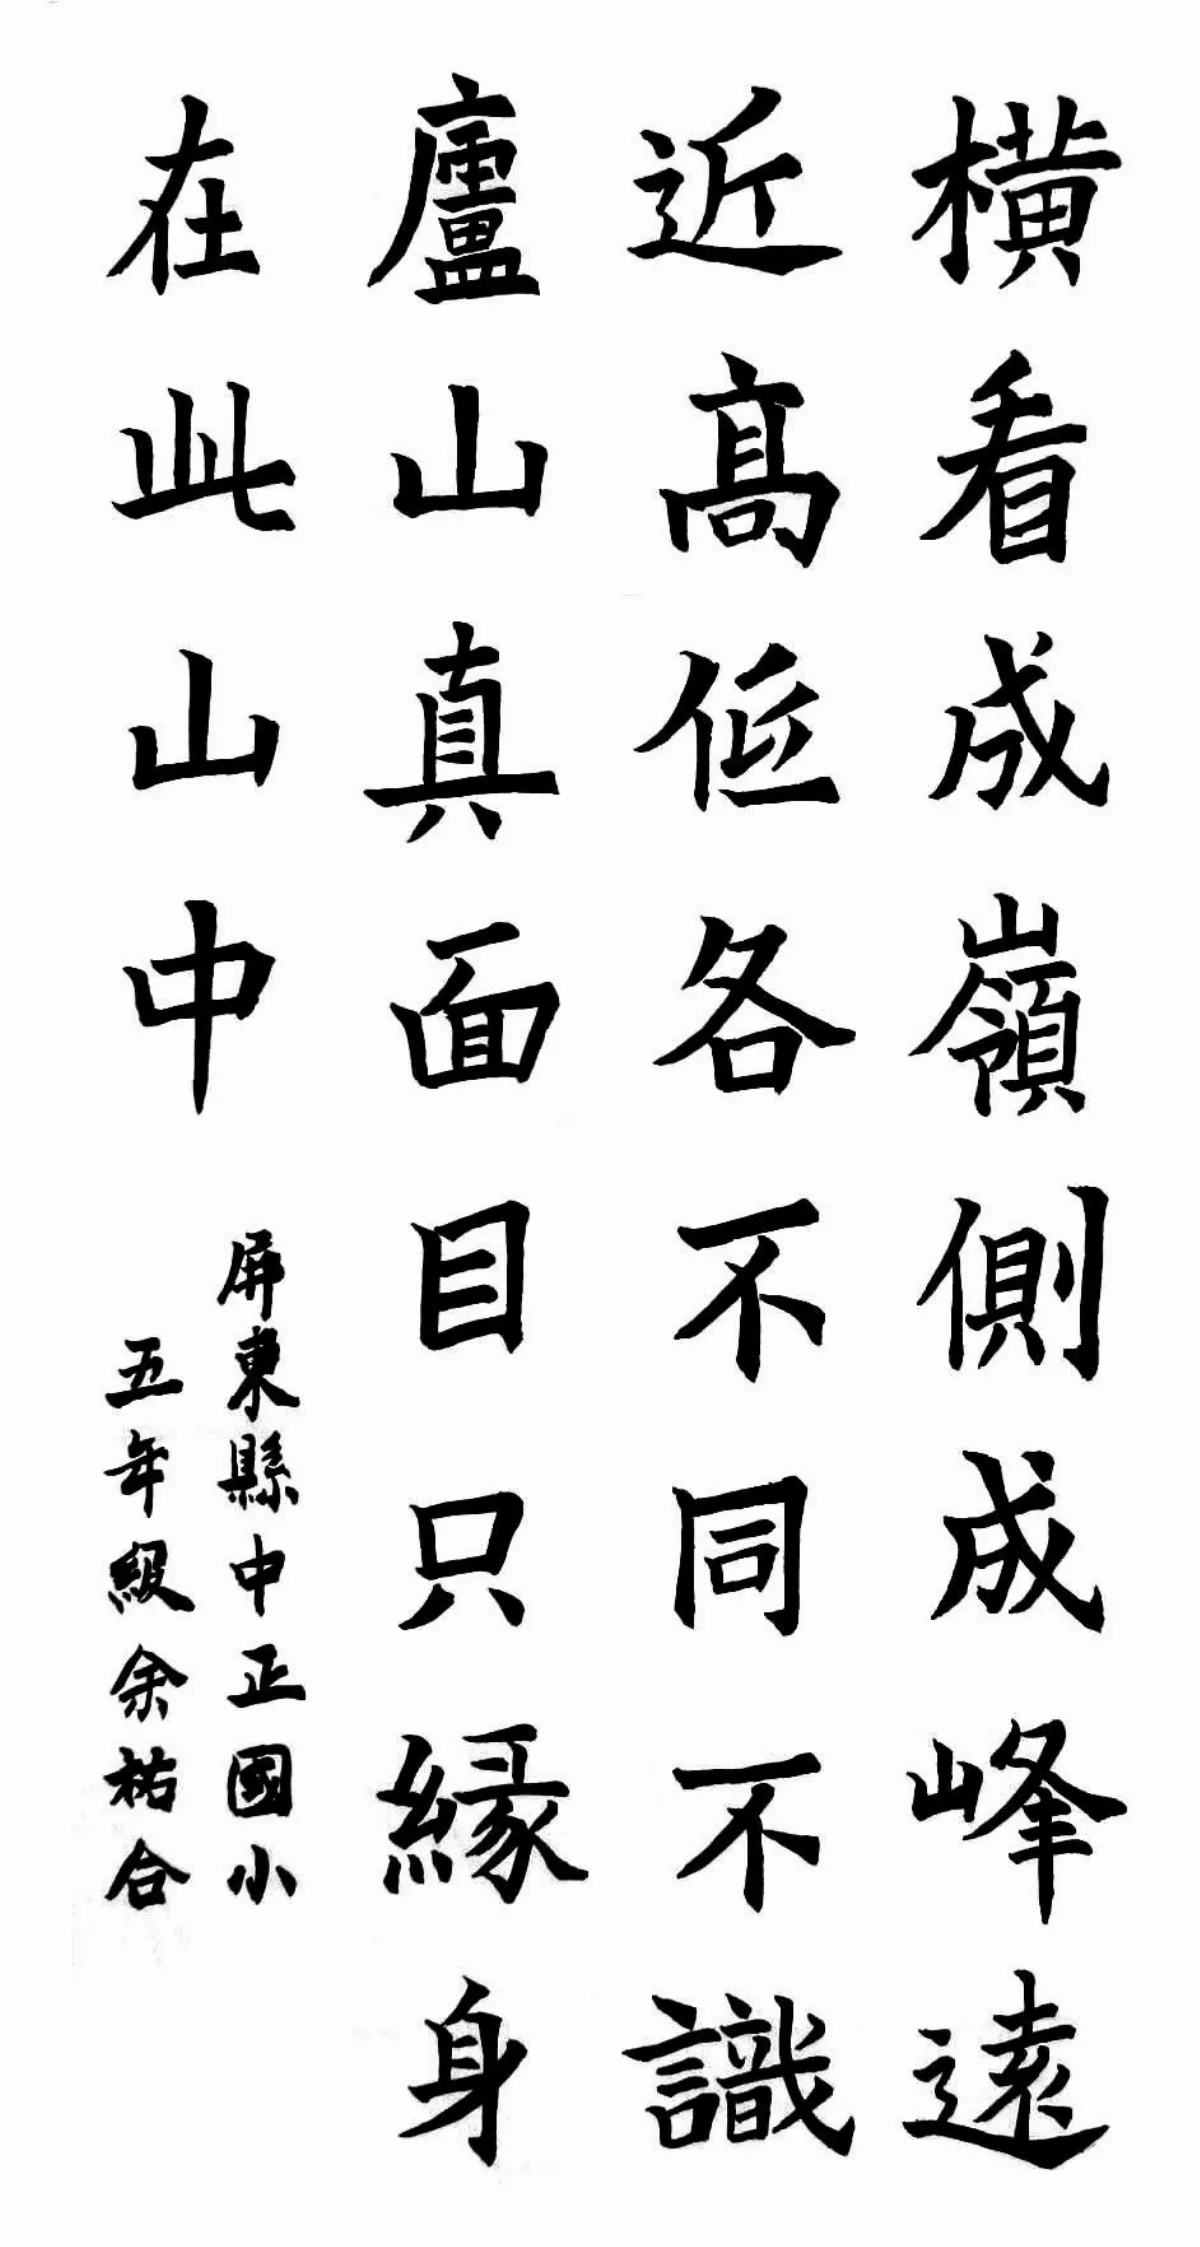 橫看成嶺側成峰遠
近高低各不同不識
廬山真面目只緣身
在此山中
屏東縣中正國小
五年級余祐合